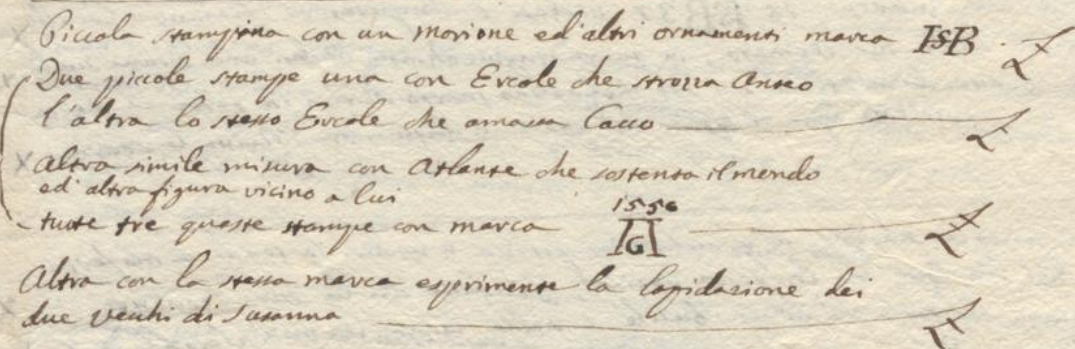 Piccola stampina con un morione ed'altri ornamenti marca ISB.
Due piccole stampe una con Ercole che strozza Anteo
l'altra lo stesso Ercole che amazza Cacco
Altra simile misura con Atlante che sostenta il mondo
ed'altra figura vicino a lui
tutte tre queste stampe con marca 1550 AG
Altra con la stessa marca esprimente la lapidazione dei
due vecchi di Susanna